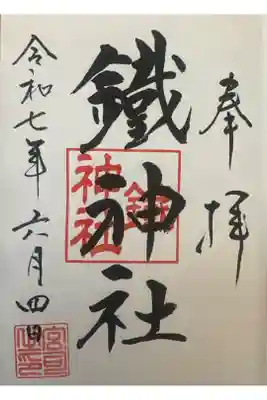 奉拝
鐵神社
令和七年六月四日